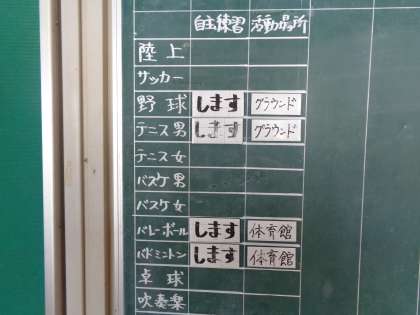 自主練習 活動場所
陸上
サッカー
野球 します グラウンド
テニス男 します グラウンド
テニス女
バスケ男
バスケ女
バレーボール します 体育館
バドミントン します 体育館
卓球
吹奏楽